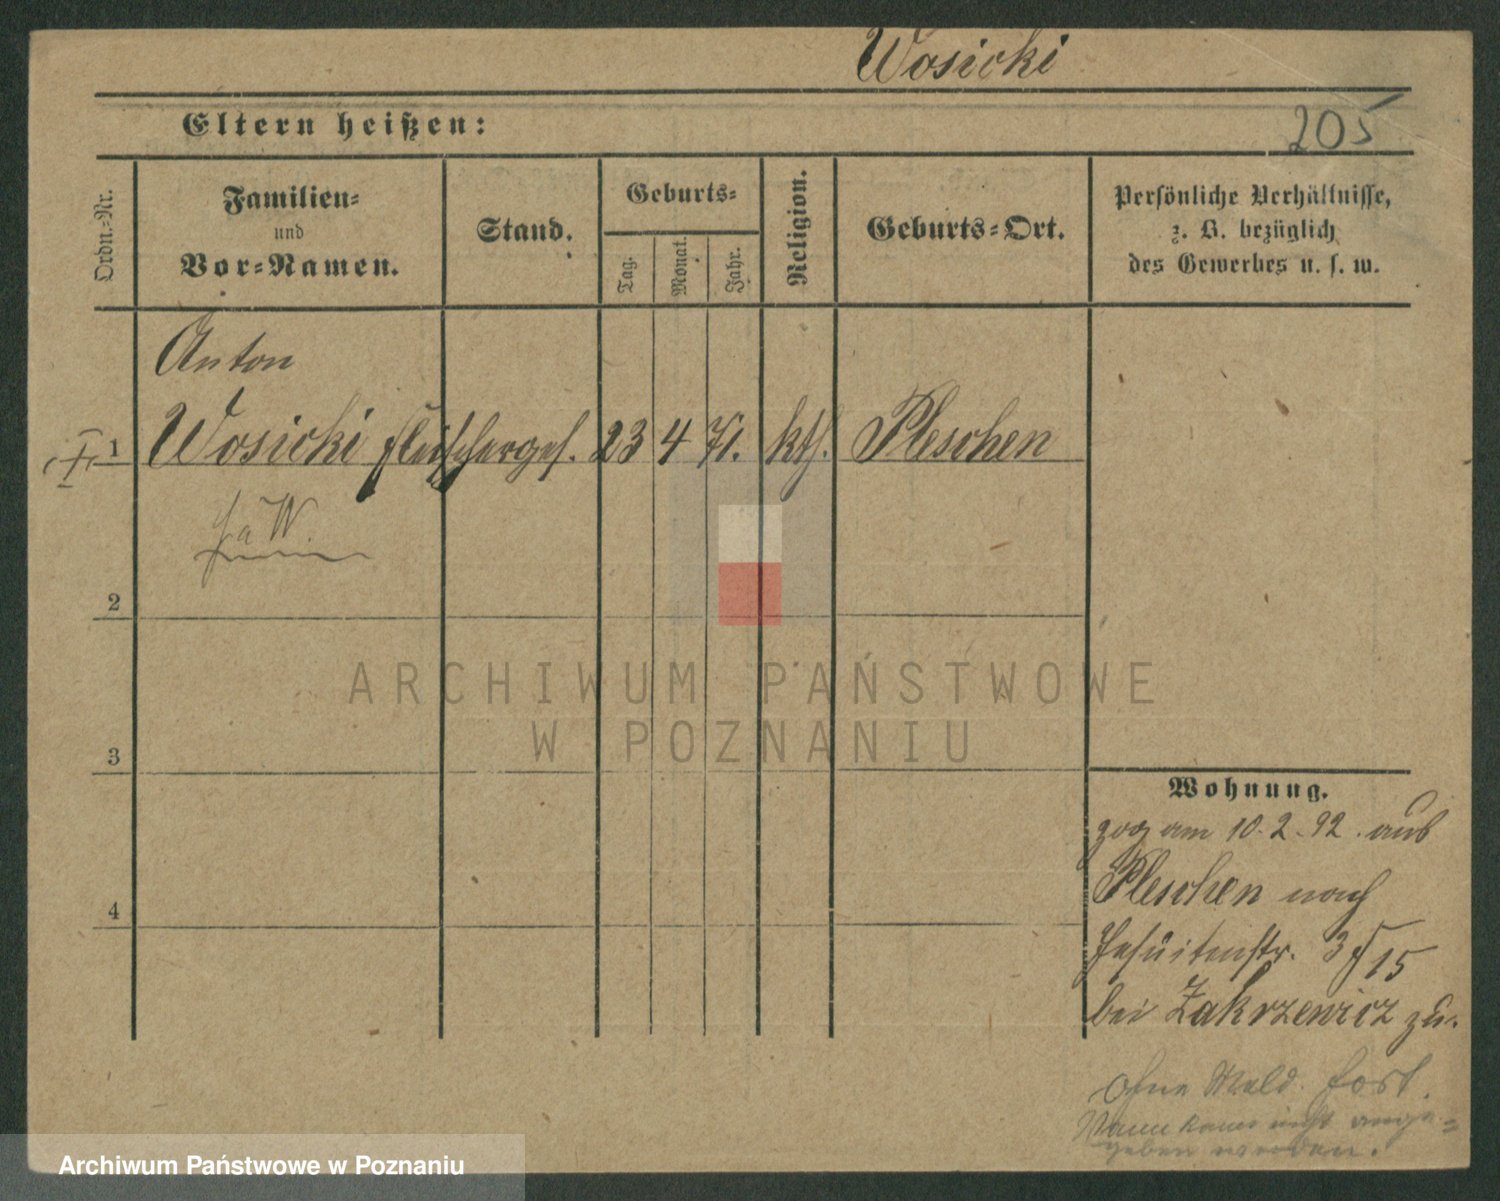 Wosicki
Eltern heißen:
205
Ordn.-Nr.
Familien-
und
Vor-Namen.
Stand.
Geburts-
Tag.
Monat.
Jahr.
Religion.
Geburts-Ort.
Persönliche Verhältnisse,
z. B. bezüglich
des Gewerbes u. s. w.
Anton
1 Wosicki Fleischerges. 23 4 71. kth. Pleschen
2
3
4
Wohnung.
zog am 10.2.92. aus
Pleschen nach
Jesuitenstr. 3 15
bei Zakrzewicz zu.
Ohne Meld. fort.
Wann kann nicht ange=
geben werden.
ARCHIWUM PAŃSTWOWE
W POZNANIU
Archiwum Państwowe w Poznaniu